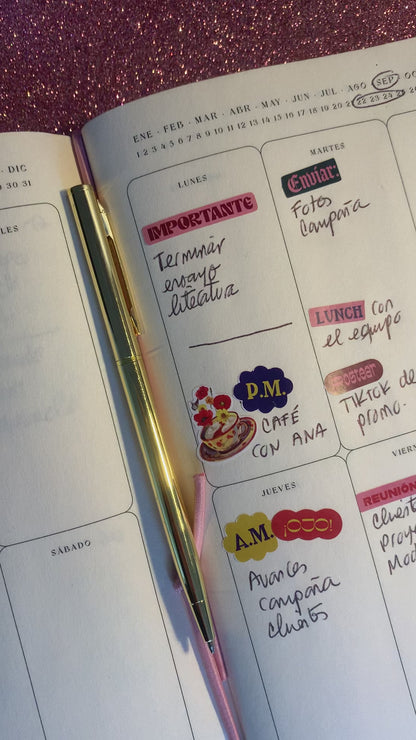 · DIC
30 31
LES
SÁBADO
ENE · FEB · MAR · ABR · MAY · JUN · JUL · AGO · SEP · OC
1 2 3 4 5 6 7 8 9 10 11 12 13 14 15 16 17 18 19 20 21 22 23 24 25
LUNES
IMPORTANTE
Terminar
ensayo
literatura
P.M.
CAFÉ
CON ANA
MARTES
Enviar:
Fotos
Campaña
LUNCH con
el equipo
Postear
TIKTOK de
promo.
JUEVES
A.M. ¡OJO!
Avances
campaña
clients
VIERN
REUNIÓN
cliente
Proye
Mod